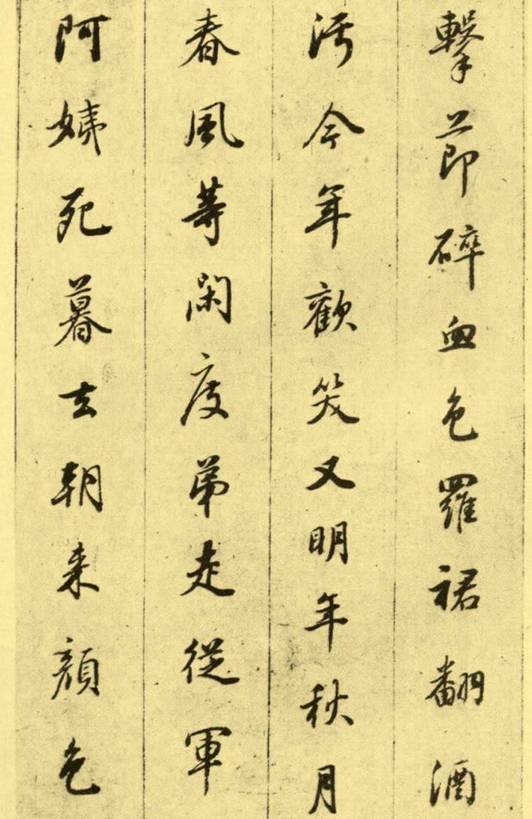 擊節碎血色羅裙翻酒
污今年歡笑又明年秋月
春風等閑度弟走從軍
阿姨死暮去朝来顔色